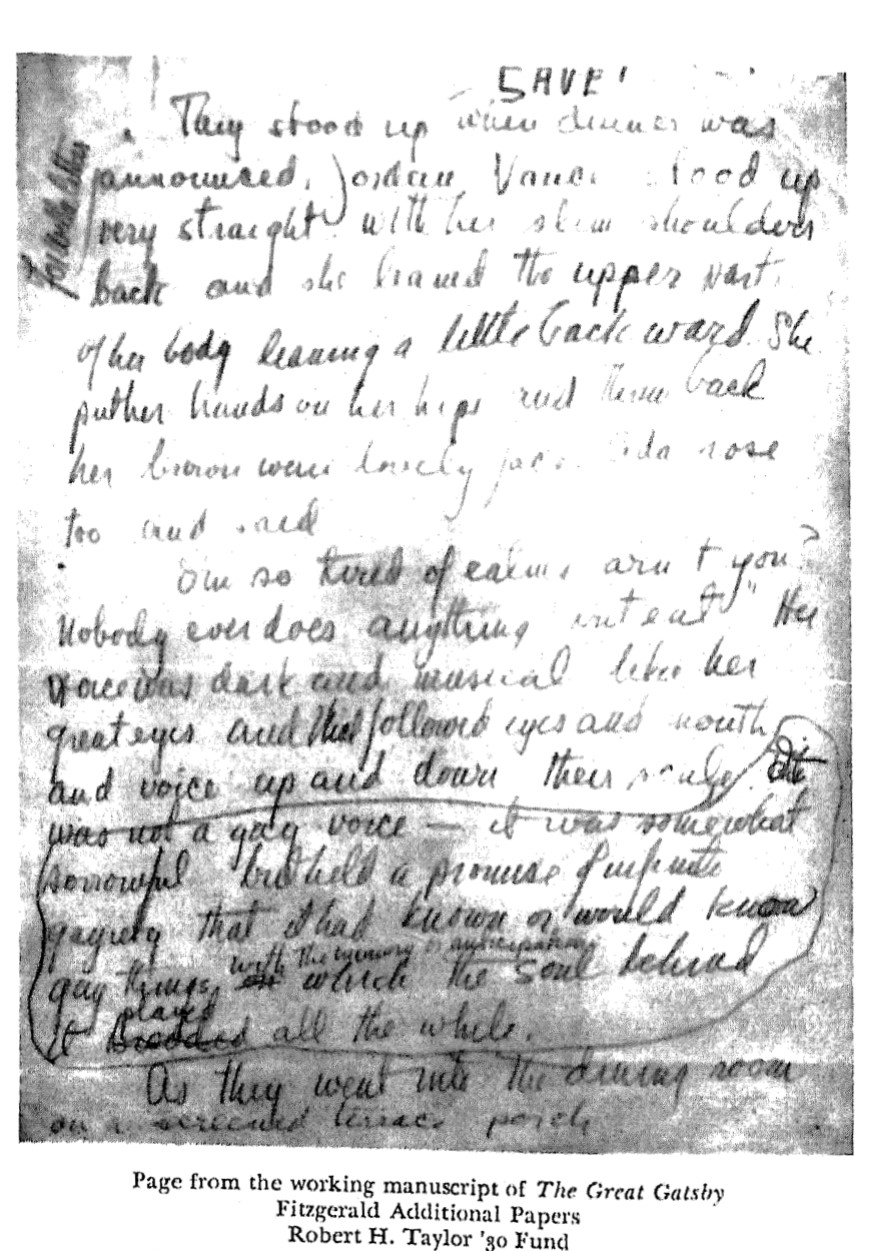 SAVE!
They stood up when dinner was
announced. Jordan Vance stood up
very straight with her slim shoulders
back and she leaned the upper part
of her body leaning a little backward. She
put her hands on her hips and threw back
her brown wan lovely face. Ada rose
too and said
so tired of eating arn't you?
Nobody ever does anything but eat" Her
voice was dark and musical like her
great eyes and that followed eyes and mouth
and voice up and down their scale. It
was not a gay voice — it was somewhat
sorrowful but held a promise of infinite
gayiety that it had known or would know
with the memory or anticipation
gay things, which the soul behind
played
it brooded all the while.
As they went into the dining room
on a screened terrace porch
Page from the working manuscript of The Great Gatsby
Fitzgerald Additional Papers
Robert H. Taylor '30 Fund